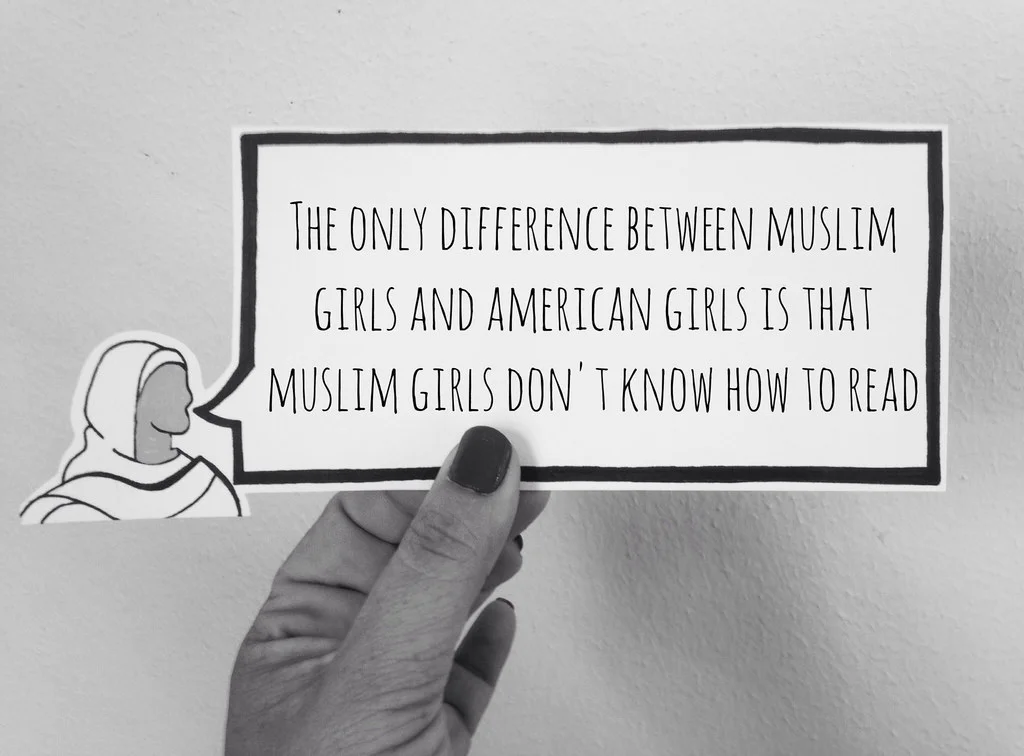 The only difference between muslim
girls and american girls is that
muslim girls don't know how to read